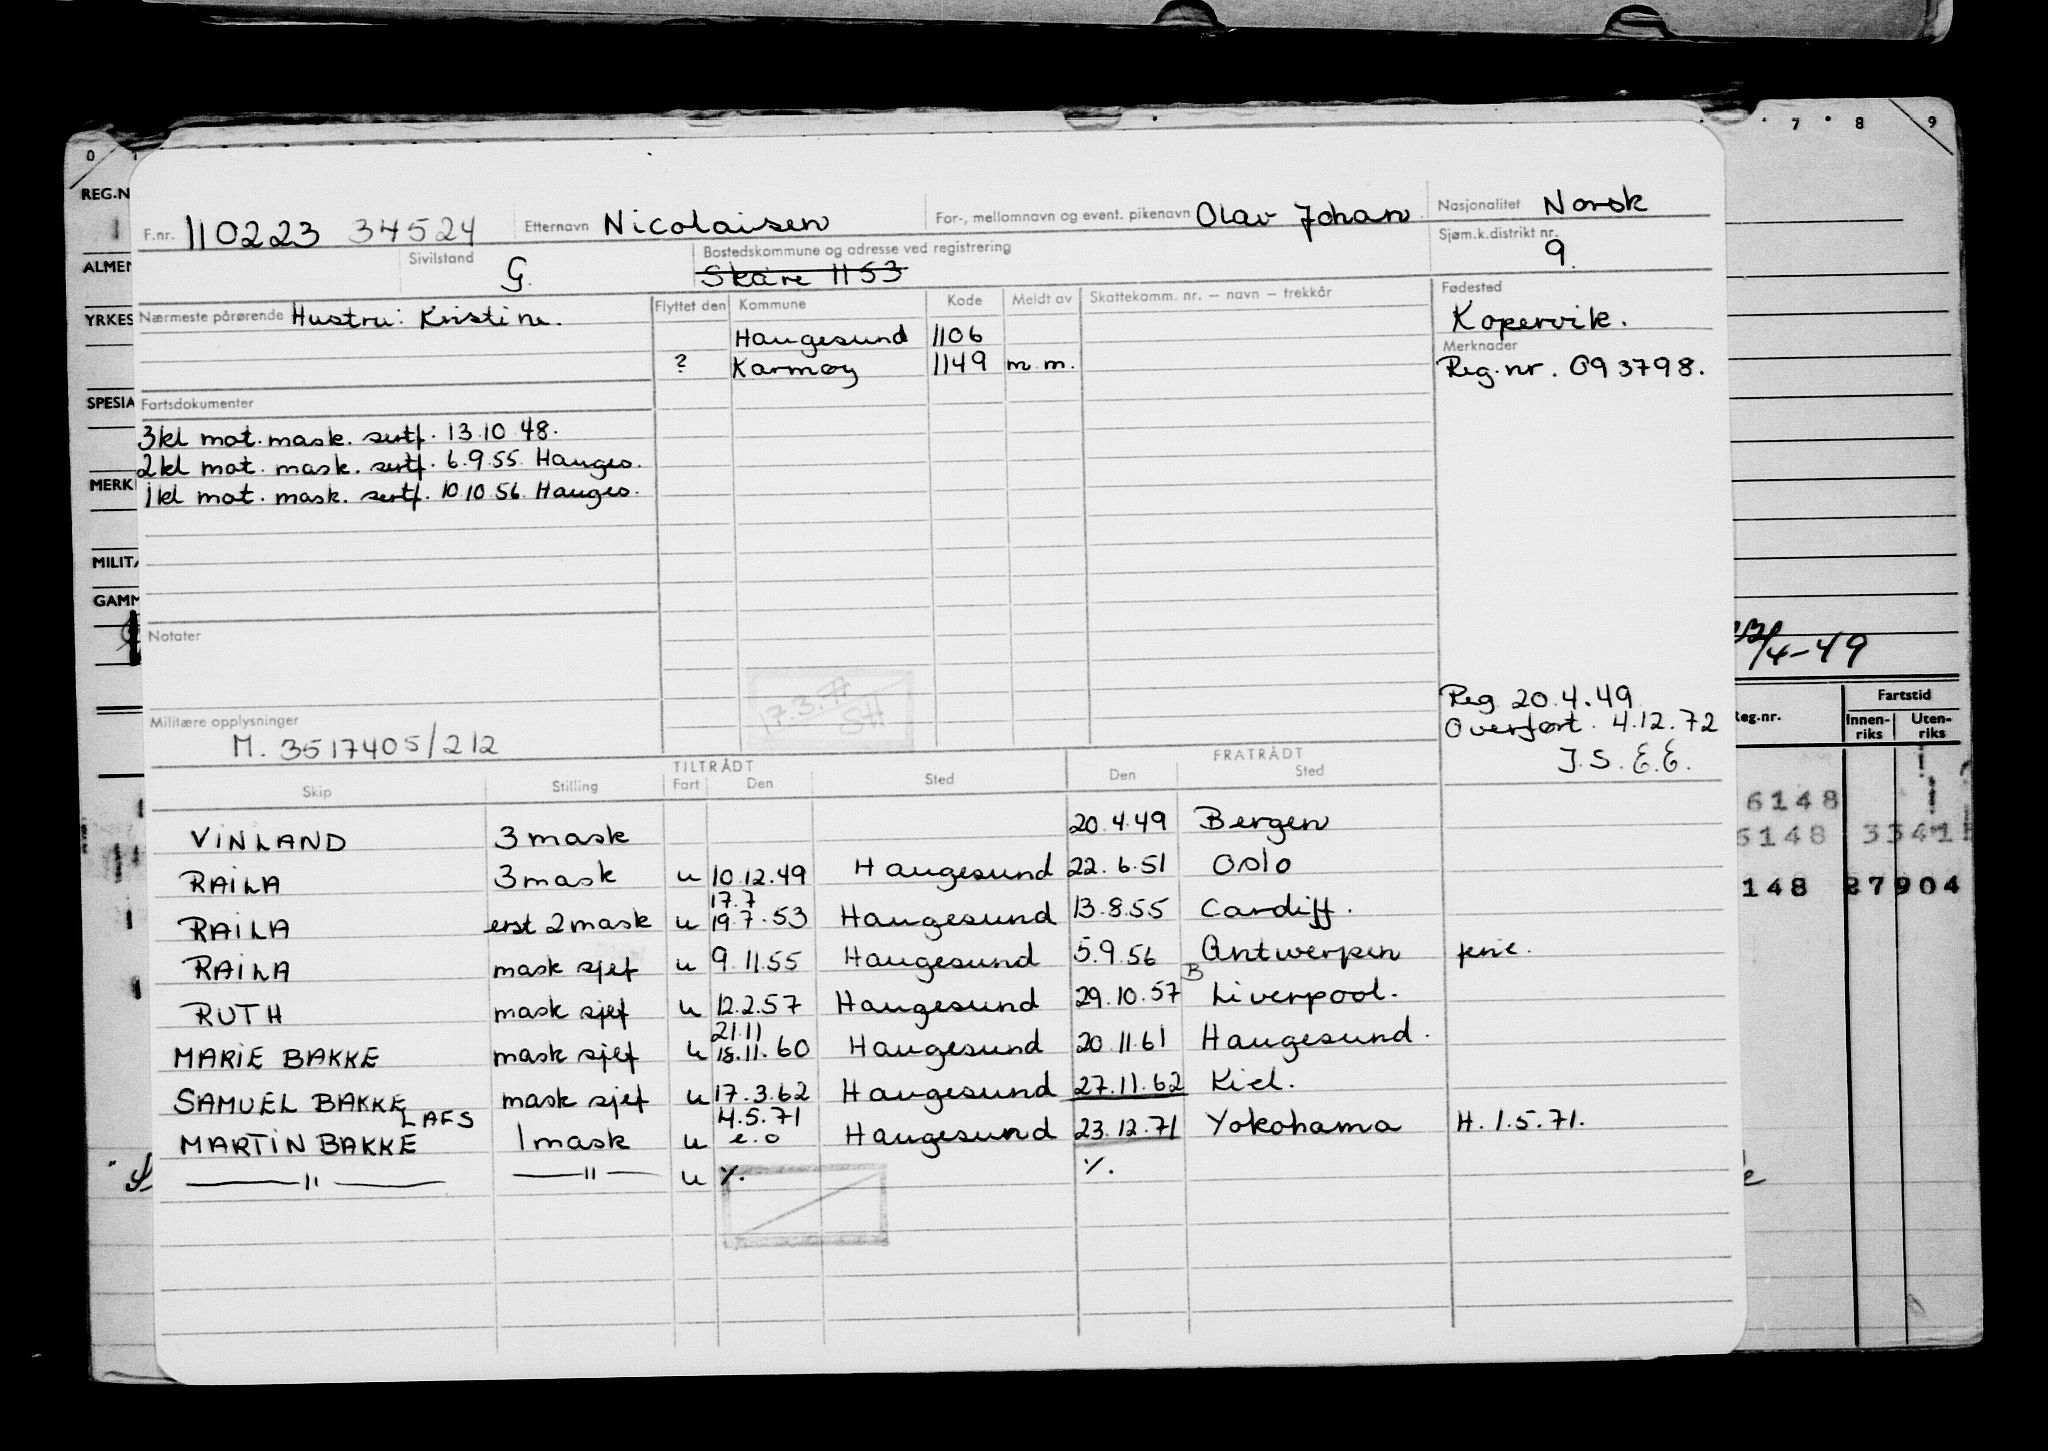 0 7 8 9
REG.N
F.nr. 110223 34524 Etternavn Nicolaisen For-, mellomnavn og event. pikenavn Olav Johan Nasjonalitet Norsk
Sivilstand G. Bostedskommune og adresse ved registrering Skåre 1153 Sjøm.k.distrikt nr. 9.
ALMEN
YRKES
Nærmeste pårørende Hustru: Kristine. Flyttet den Kommune Kode Meldt av Skattekomm. nr. – navn – trekkår Fødested
Haugesund 1106 Kopervik.
? Karmøy 1149 m.m. Merknader
Reg.nr. 093798.
SPESIA
Fartsdokumenter
3kl mot. mask. sertf. 13.10 48.
2kl mot. mask. sertf. 6.9.55 Hauges.
MERK
1kl mot. mask. sertf. 10.10.56. Hauges.
MILITÆ
GAMM
Notater
/4-49
17.3.77
Reg 20.4.49
Overført. 4.12.72
J.S. E.E.
Militære opplysninger
M. 3517405/212
Reg.nr. Fartstid
Innen-riks Uten-riks
TILTRÅDT FRATRÅDT
Skip Stilling Fart Den Sted Den Sted
6148
VINLAND 3 mask 20.4.49 Bergen
6148 3341
RAILA 3 mask u 10.12.49 Haugesund 22.6.51 Oslo
148 27904
17.7
RAILA erst 2 mask u 19.7.53 Haugesund 13.8.55 Cardiff.
RAILA mask sjef u 9.11.55 Haugesund 5.9.56 Antwerpen ferie.
B
RUTH mask sjef u 12.2.57 Haugesund 29.10.57 Liverpool.
21.11
MARIE BAKKE mask sjef u 18.11.60 Haugesund 20.11.61 Haugesund.
SAMUEL BAKKE mask sjef u 17.3.62 Haugesund 27.11.62 Kiel.
LAFS 4.5.71
MARTIN BAKKE 1 mask u e.o Haugesund 23.12.71 Yokohama H. 1.5.71.
— " — — " — u %. %.